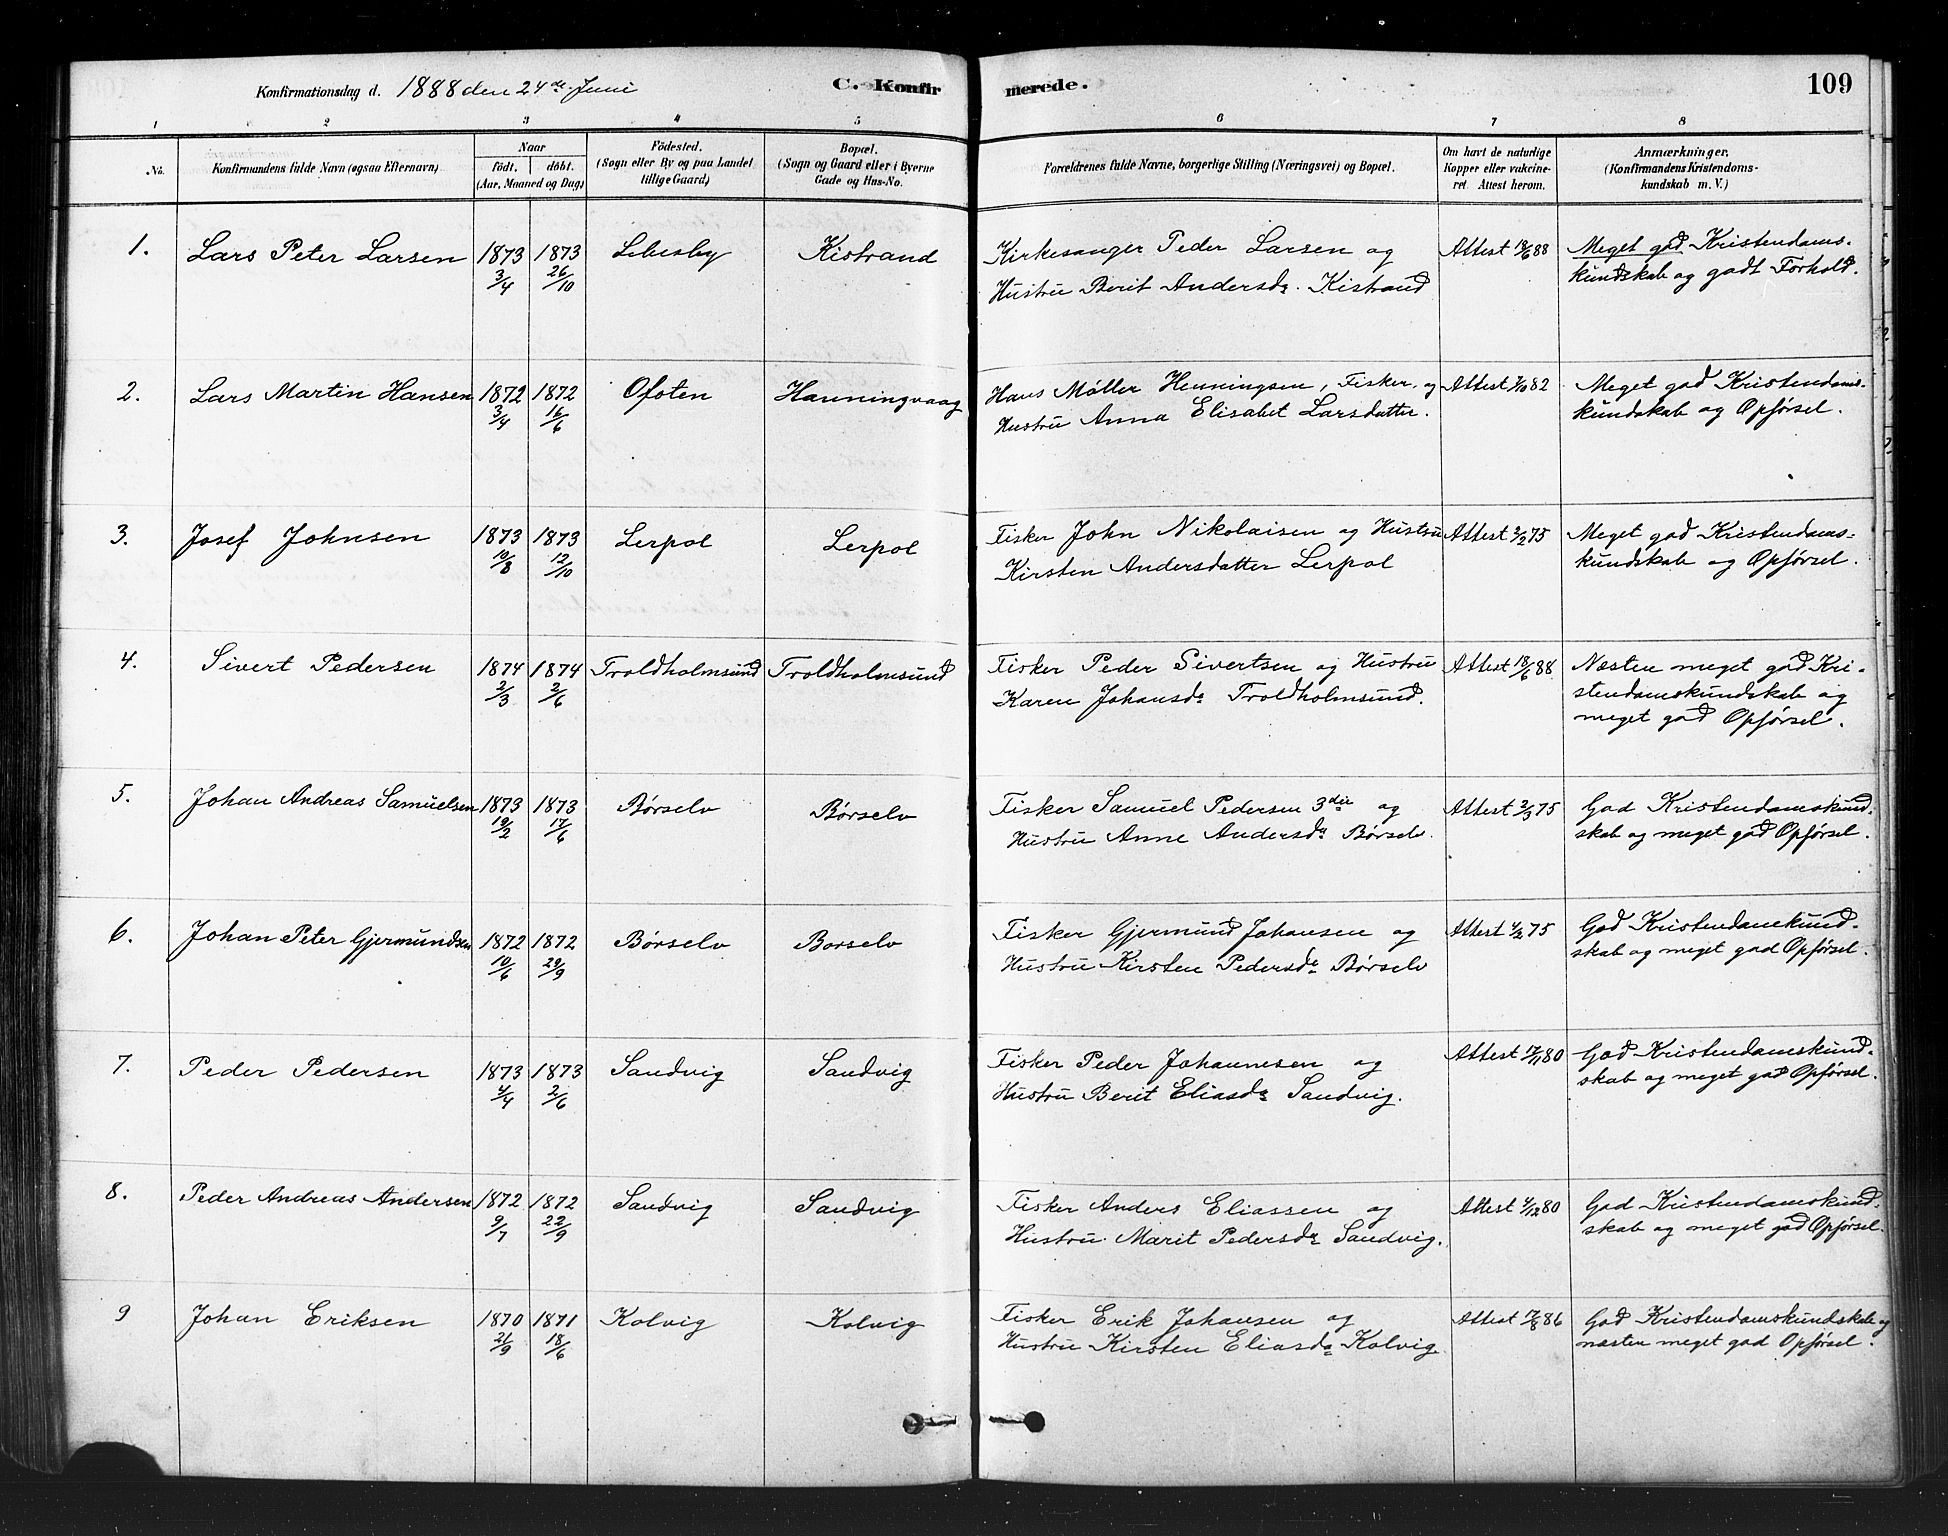 Konfirmationsdag d. 1888 den 24de Juni C. Konfirmerede. 109
1 2 3 4 5 6 7 8
No. Konfirmandens fulde Navn (ogsaa Efternavn). Naar födt. döbt. (Aar, Maaned og Dag) Födested. (Sogn eller By og paa Landet tillige Gaard) Bopæl. (Sogn og Gaard eller i Byerne Gade og Hus-No. Forældrenes fulde Navne, borgerlige Stilling (Næringsvei) og Bopæl. Om havt de naturlige Kopper eller vakcineret. Attest herom. Anmærkninger. (Konfirmandens Kristendomskundskab m. V.)
1. Lars Peter Larsen 1873 3/4 1873 26/10 Lebesby Kistrand Kirkesanger Peder Larsen og Attest 18/6 88 Meget god Kristendoms-
Hustru Berit Andersdr. Kistrand kundskab og godt Forhold.
2. Lars Martin Hansen 1872 3/4 1872 16/6 Ofoten Hanningvaag Hans Møller Henningsen, Fisker, og Attest 7/10 82 Meget god Kristendoms-
Hustru Anna Elisabet Larsdatter. kundskab og Opførsel.
3. Josef Johnsen 1873 10/8 1873 12/10 Lerpol Lerpol Fisker John Nikolaisen og Hustru Attest 2/2 75 Meget god Kristendoms-
Kirsten Andersdatter Lerpol kundskab og Opførsel.
4. Sivert Pedersen 1874 2/3 1874 2/6 Troldholmsund Troldholmsund Fisker Peder Sivertsen og Hustru Attest 18/6 88 Næsten meget god Kri-
Karen Johansdr Troldholmsund. stendomskundskab og
meget god Opførsel.
5. Johan Andreas Samuelsen 1873 19/2 1873 17/6 Børselv Børselv Fisker Samuel Pedersen 3die og Attest 2/3 75 God Kristendomskund-
Hustru Anne Andersdr Børselv. skab og meget god Opførsel.
6. Johan Peter Gjermundsen 1872 10/6 1872 29/9 Børselv Borselv Fisker Gjermund Johansen og Attest 4/2 75 God Kristendomskund-
Hustru Kirsten Pedersdr Børselv skab og meget god Opførsel.
7. Peder Pedersen 1873 4/4 1873 2/6 Sandvig Sandvig Fisker Peder Johannesen og Attest 17/11 80 God Kristendomskund-
Hustru Berit Eliasdr Sandvig. skab og meget god Opførsel.
8. Peder Andreas Andersen 1872 9/7 1872 22/9 Sandvig Sandvig Fisker Anders Eliassen og Attest 4/12 80 God Kristendomskund-
Hustru Marit Pedersdr Sandvig. skab og meget god Opførsel.
9 Johan Eriksen 1870 21/9 1871 18/6 Kolvig Kolvig Fisker Erik Johansen og Attest 17/8 86 God Kristendomskundskab og
Hustru Kirsten Eliasdr Kolvig næsten meget god Opførsel.